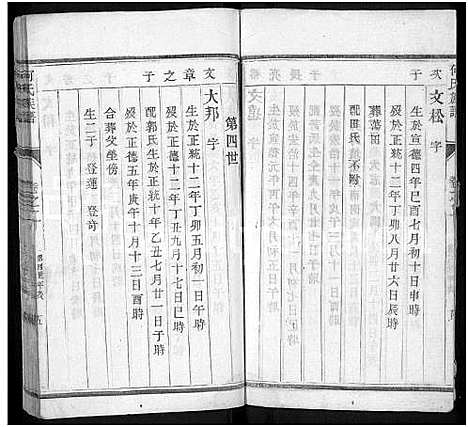 何氏族譜
次
文松 字
生於宣德四年己酉七月初十日申時
歿於正統十二年丁卯八月廿六日辰時
葬蒥田
配 氏不附
第四世
文章之子
大邦 字
生於正統十二年丁卯五月初一日午時
歿於正德十二年丁丑九月十七日巳時
配郭氏生於正統十年乙丑七月廿一日子時
歿於正德五年庚午十月十三日酉時
合葬父坐傍
生二子 登蓮 登奇
何氏族譜
卷之
五